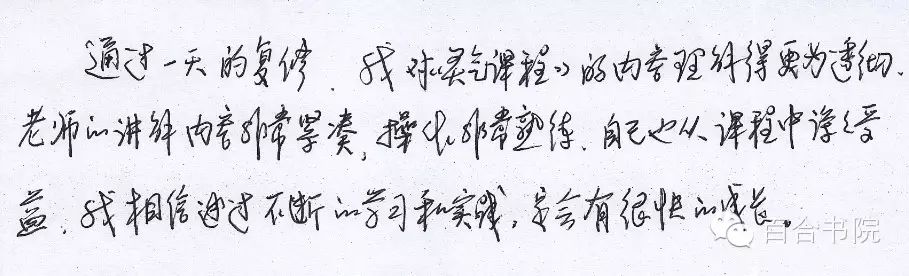 通过一天的复修，我对《灵气课程》的内容理解得更为透彻。
老师的讲解内容非常紧凑，操作非常熟练，自己也从课程中深受
益，我相信通过不断的学习和实践，定会有很快的成长。
百合书院